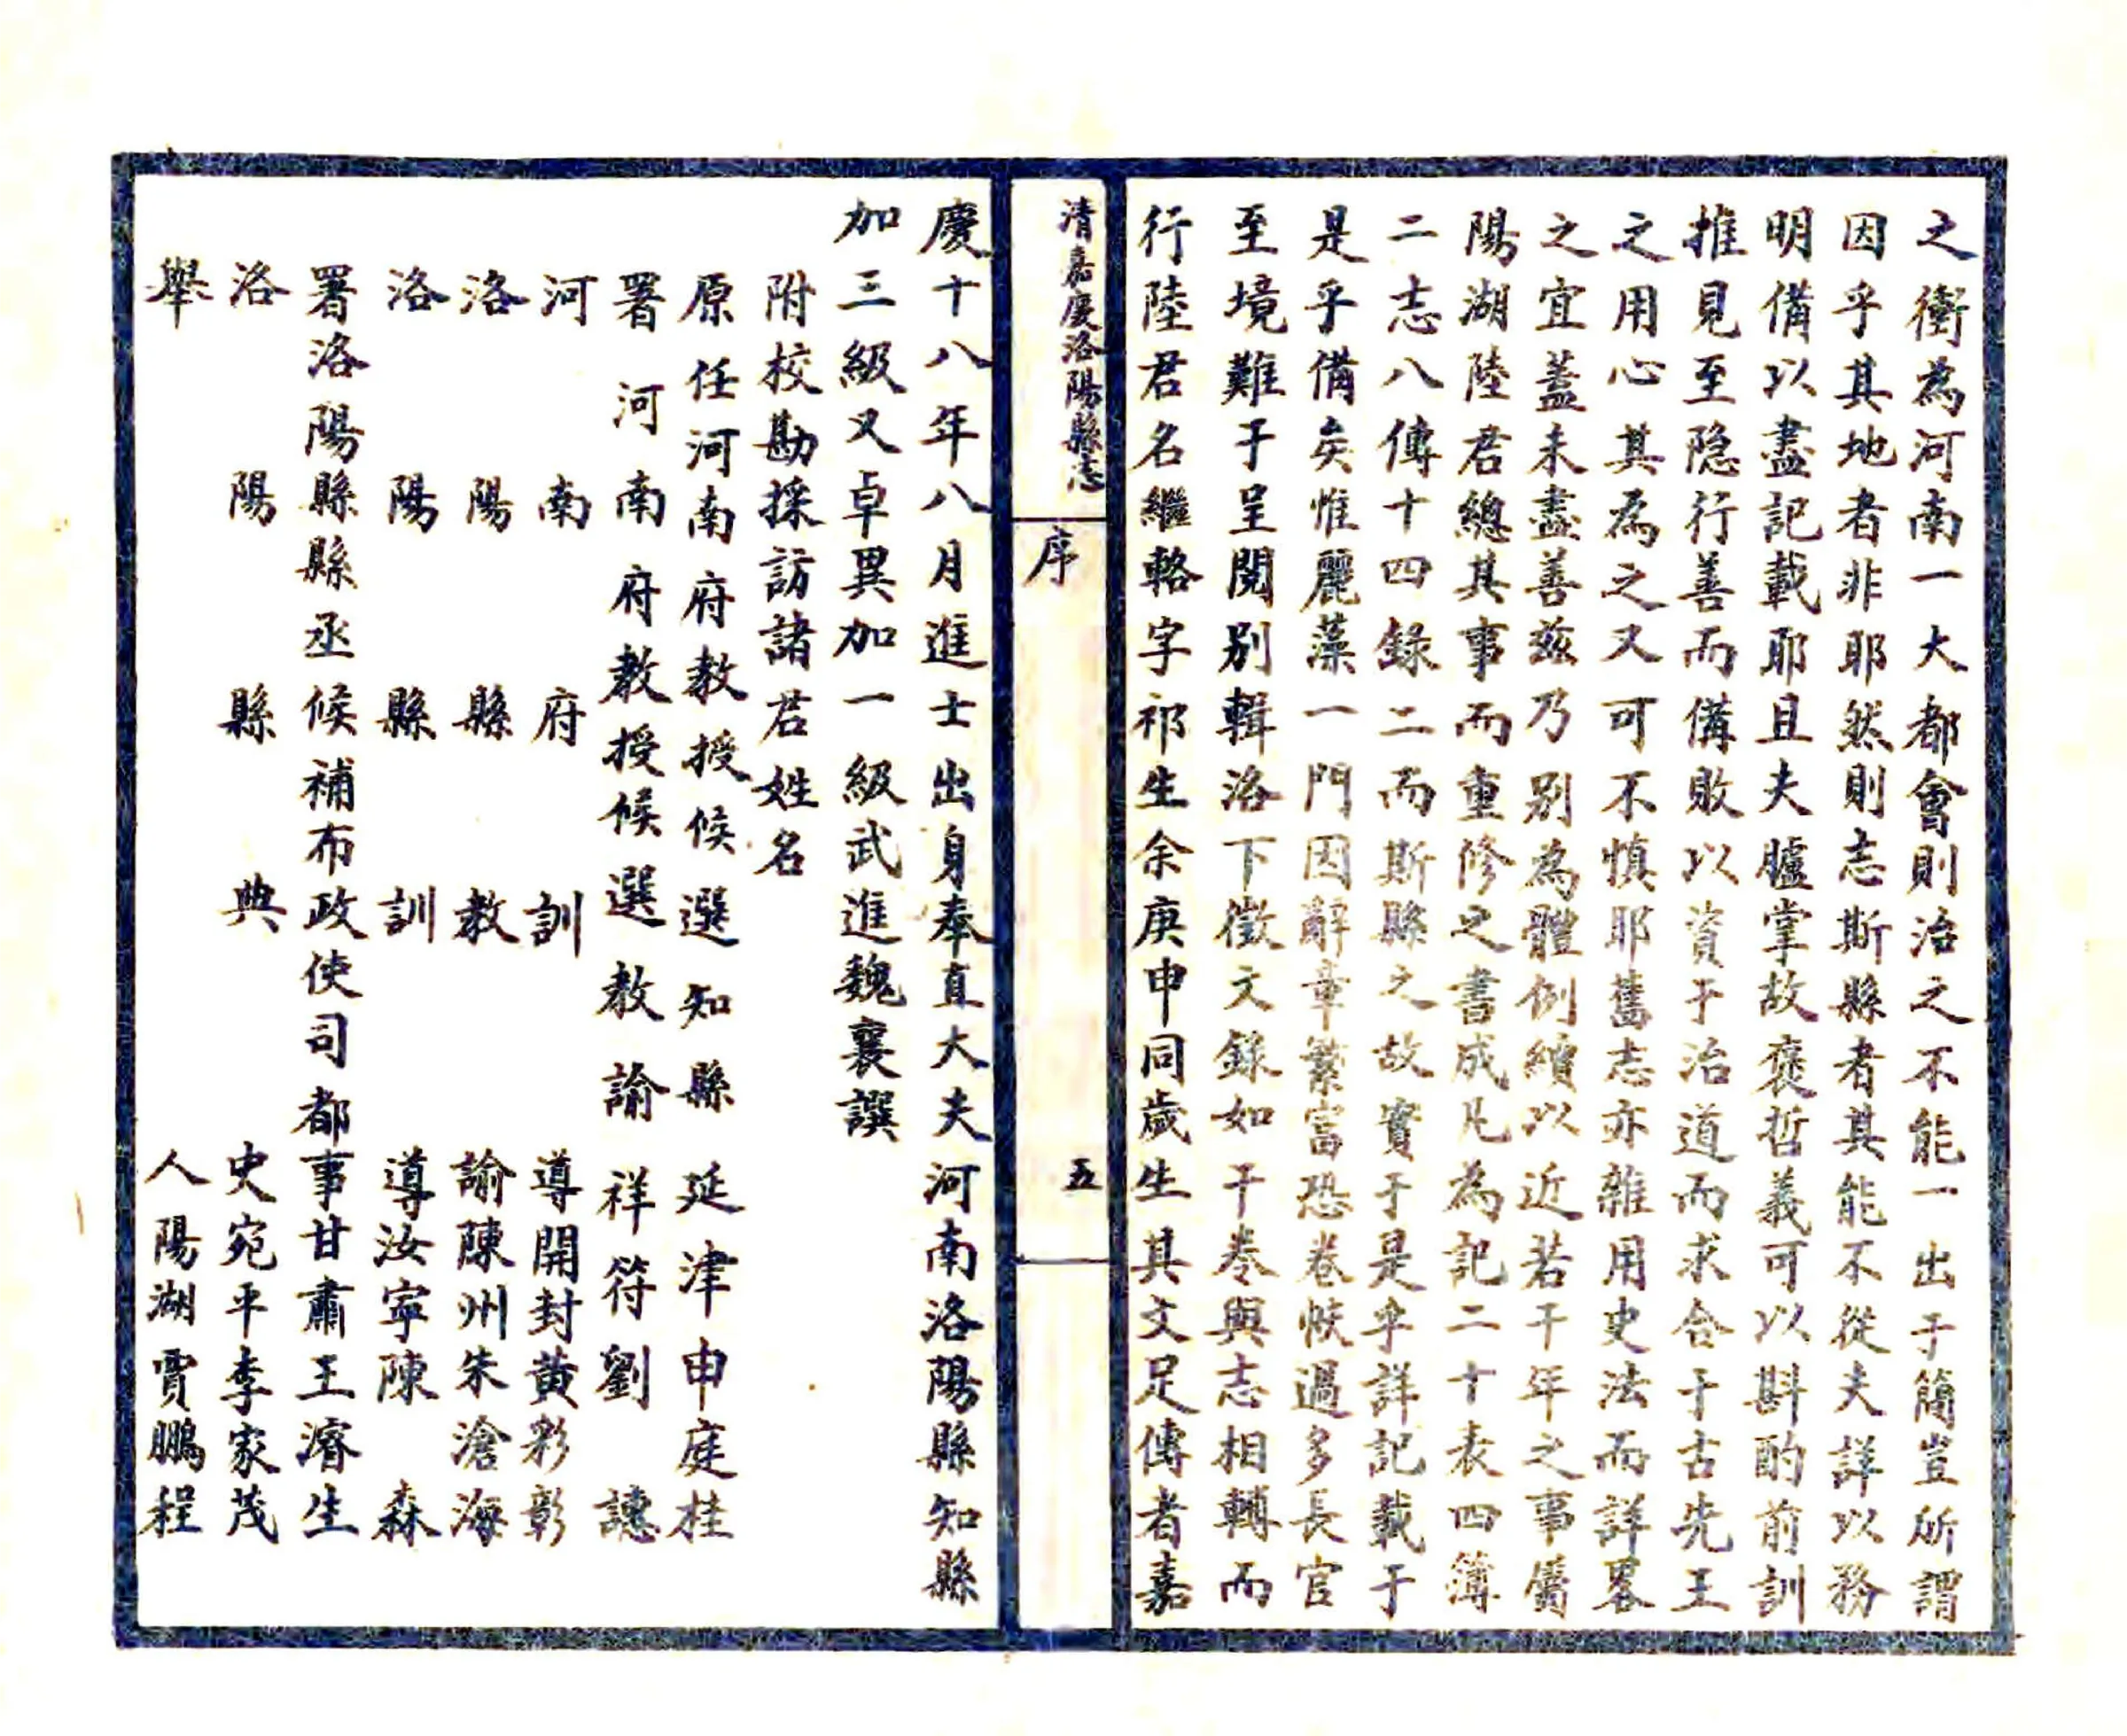 之衝為河南一大都會則治之不能一出于簡豈所謂
因乎其地者非耶然則志斯縣者其能不從夫詳以務
明備以盡記載耶且夫臚掌故褒哲義可以斟酌前訓
推見至隐行善而備敗以資于治道而求合于古先王
之用心其為之又可不慎耶舊志亦雜用史法而詳畧
之宜蓋未盡善兹乃别為體例續以近若干年之事屬
陽湖陸君總其事而重修之書成凡為記二十表四簿
二志八傳十四錄二而斯縣之故實于是乎詳記載于
是乎備矣惟麗藻一門因辭章繁富恐卷帙過多長官
至境難于呈閱别輯洛下徵文錄如干卷與志相輔而
行陸君名繼輅字祁生余庚申同歲生其文足傳者嘉
清嘉慶洛陽縣志
序
五
慶十八年八月進士出身奉直大夫河南洛陽縣知縣
加三級又卓異加一級武進魏襄譔
附校勘採訪諸君姓名
原任河南府教授候選知縣延津申庭桂
署河南府教授候選教諭祥符劉譓
河南府訓導開封黄彩彰
洛陽縣教諭陳州朱滄海
洛陽縣訓導汝寧陳森
署洛陽縣縣丞候補布政使司都事甘肅王濬生
洛陽縣典史宛平李家茂
舉人陽湖賈鵬程